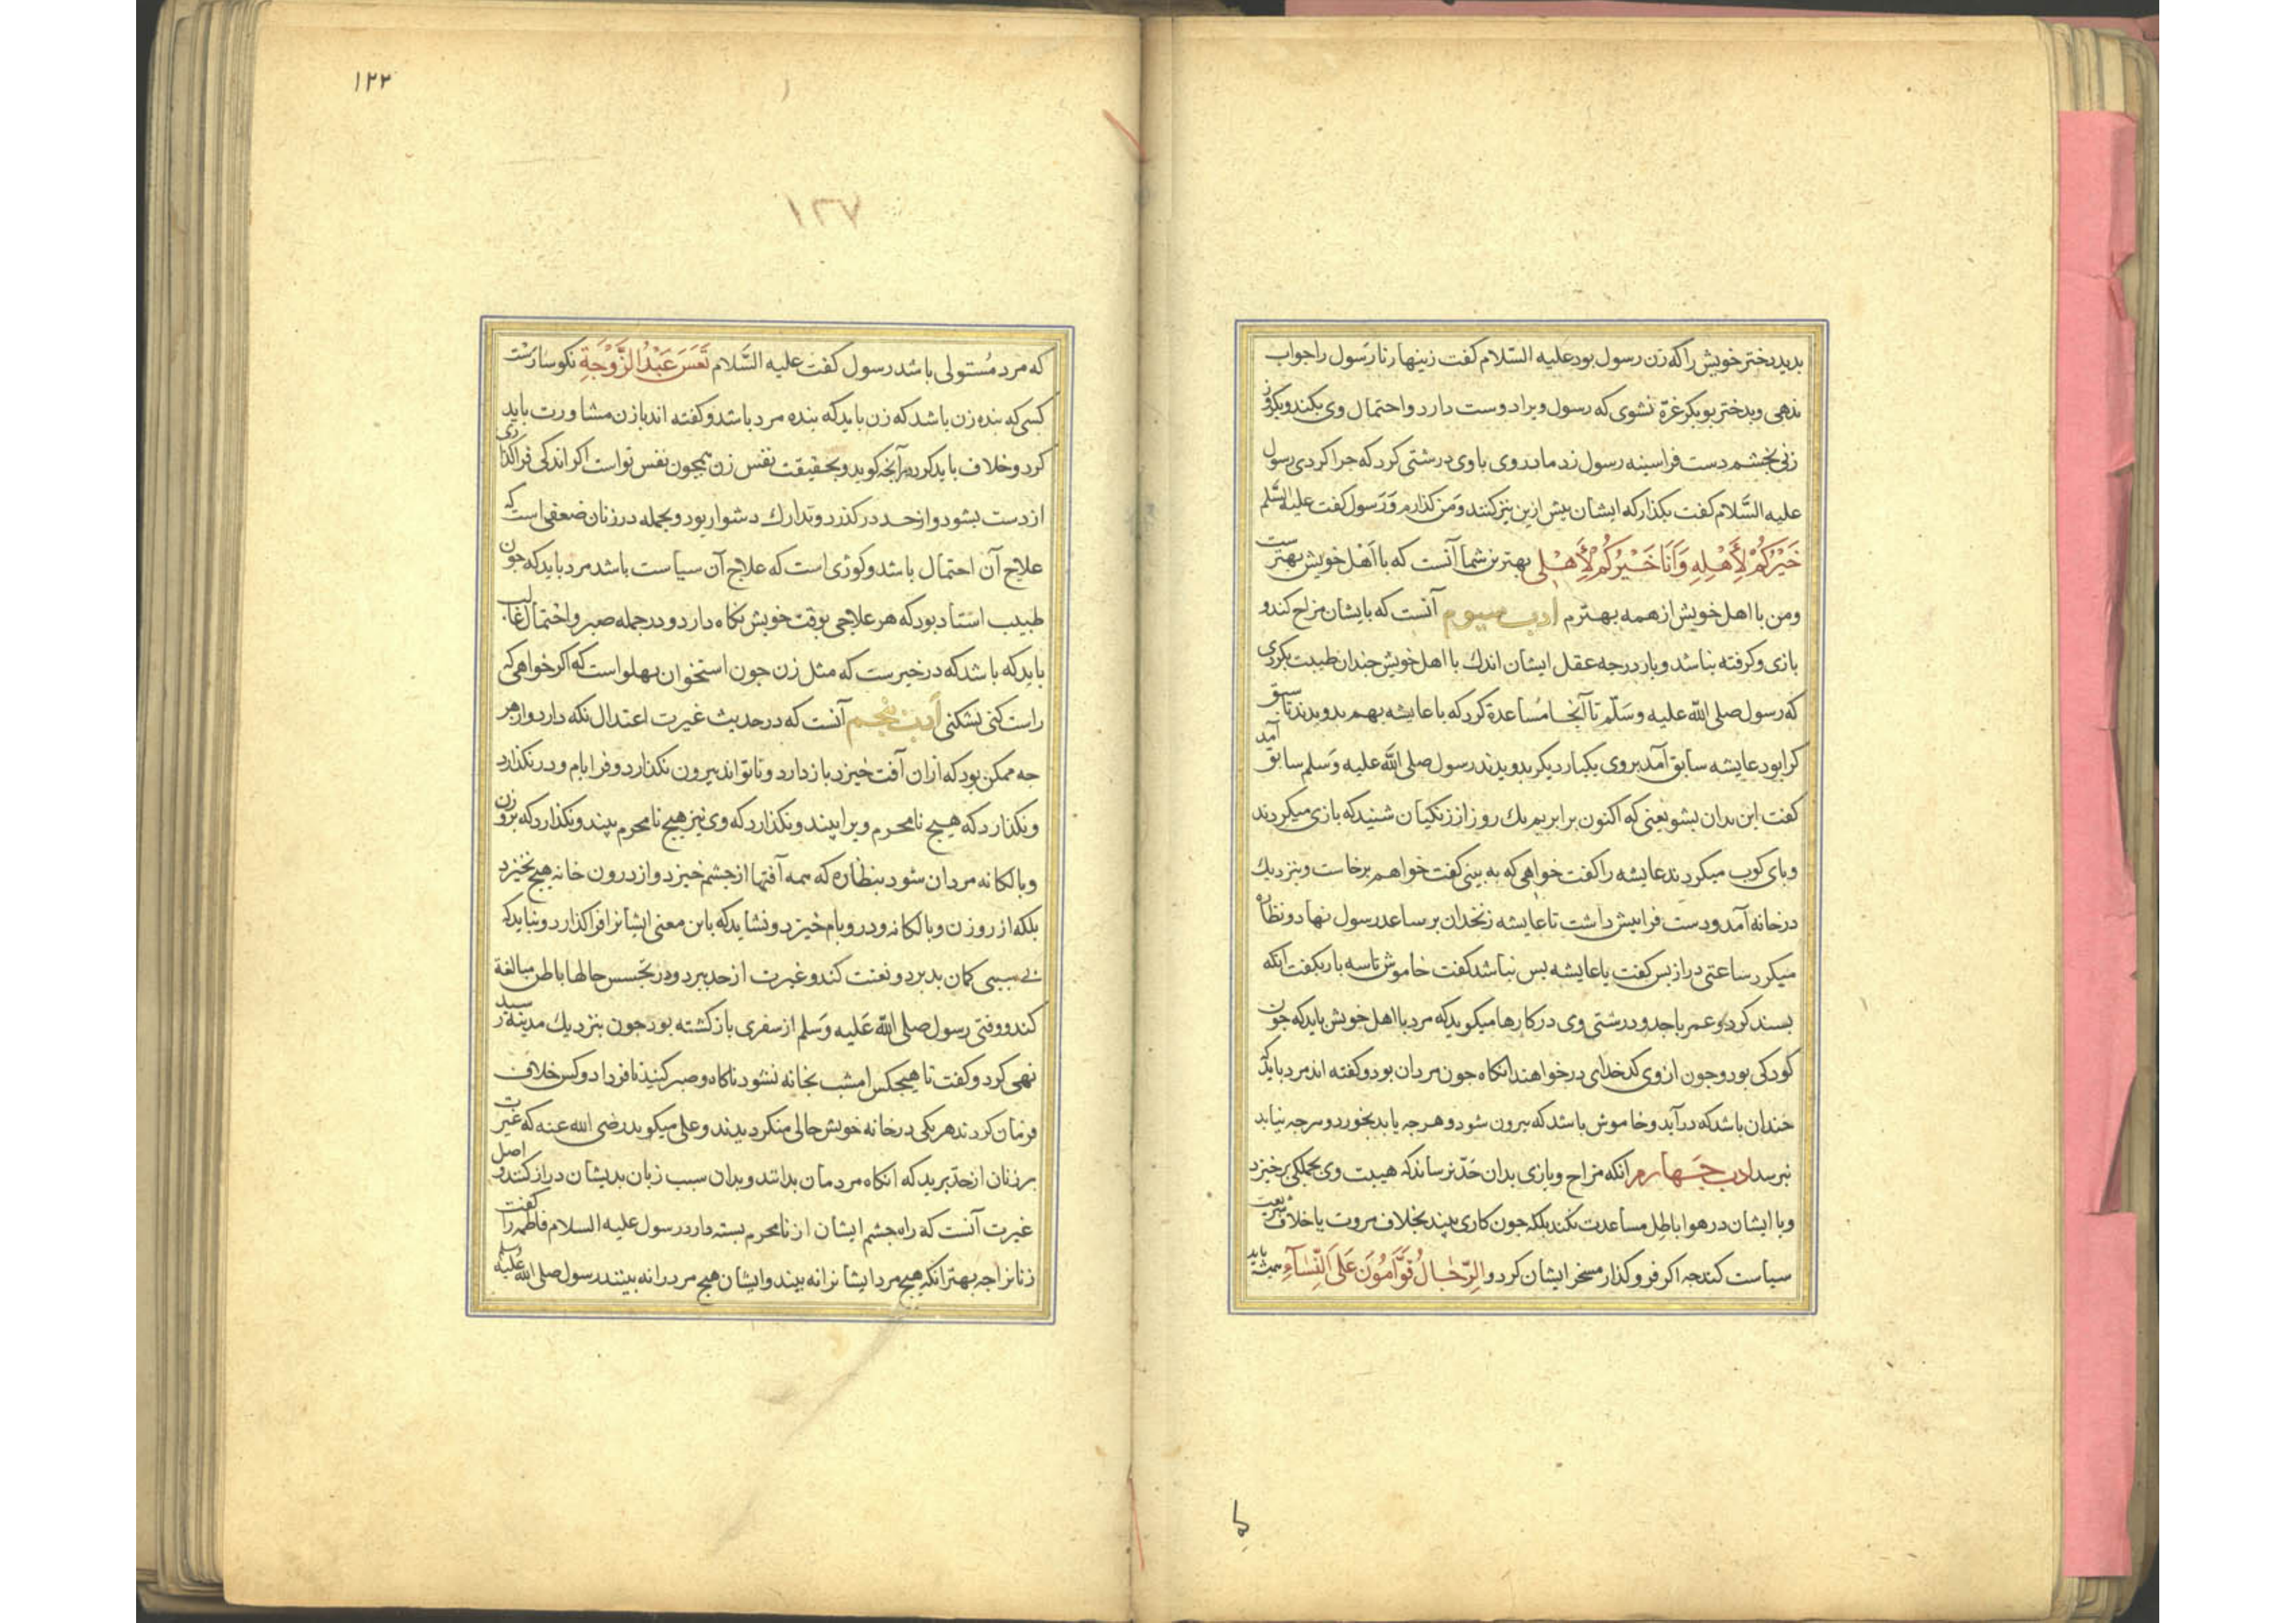 بدید دختر خویش را که زن رسول بود علیه السّلام کفت زینهار تا رسول را جواب
ندهی و بدختر بوبکر غرّه نشوی که رسول ویرا دوست دارد و احتمال وی بکند و یکروز
زنی بخشم دست فرا سینه رسول زد مادر وی با وی درشتی کرد که جرا کردی رسول
علیه السَّلام کفت بکذار که ایشان بیش ازین نیز کنند و من کذارم وَرَسول کفت علیه السَّلم
خَیْرُکُمْ لِأَهْلِهِ وَأَنَا خَیْرُکُمْ لِأَهْلِی بهترین شما آنست که با اَهْل خویش بهترست
ومن با اهل خویش از همه بهترم ادب سیوم آنست که با یشان مزاح کند و
بازی و کرفته نباشد و باز درجه عقل ایشان اندك با اهل خویش جندان طیبت نکردی
که رسول صلی الله علیه وسَلّم تا آنجا مُساعدة کرد که با عایشه بهم بدویدند تا سبق
کرا بود عایشه سابق آمد بروی یکبار دیکر بدویدند رسول صلی الله علیه وَسَلم سابق آمد
کفت این بدان بشو یعنی که اکنون برابریم یك روز از زنکیان شنید که بازی میکردند
و بای کوب میکردند عایشه را کفت خواهی که به بینی کفت خواهم برخاست و بنزدیك
در خانه آمد و دست فرا بیش داشت تا عایشه زنخدان بر ساعد رسول نهاد و نظاره
میکرد ساعتی دراز بس کفت یا عایشه بس نباشد کفت خاموش تا سه بار بکفت آنکه
بسند کرد و عمر با جد و درشتی وی در کارها میکوید که مرد با اهل خویش باید که جون
کودکی بود و جون از وی کدخدای در خواهند انکاه جون مردان بود و کفته اند مرد باید که
خندان باشد که در آید و خاموش باشد که بیرون شود و هرجه یابد بخورد و هرجه نیابد
نبرسد ادب جَهارم انکه مزاح و بازی بدان حَدّ نرساند که هیبت وی بجملکی برخیزد
و با ایشان در هوا باطِل مساعدت نکند بلکه جون کاری بیند بخلاف مروت یا خلاف شریعت
سیاست کند جه اکر فرو کذار مسخر ایشان کردد و الرِّجٰالُ قَوَّامُونَ عَلَی النِّسَآءِ همیشه باید
۱۲۲
۱۲۷
که مرد مُستَولی باشد رسول کفت علیه السَّلام تَعَسَ عَبْدُ الزَّوْجَةِ نکوسارست
کسی که بنده زن باشد که زن باید که بنده مرد باشد و کفته اند با زن مشاورت باید
کرد و خلاف باید کرد در آنجه کوید و بحقیقت نفس زن همجون نفس تو است اکر اندکی فرا کذاری
از دست بشود و از حد در کذرد و تدارك دشوار بود و بجمله در زنان ضعفی است که
علاج آن احتمال باشد و کوژی است که علاج آن سیاست باشد مرد باید که جون
طبیب استاد بود که هر علاجی بوقت خویش نکاه دارد و در جمله صبر و احتمال غالب
باید که باشد که در خبرست که مثل زن جون استخوان بهلو است که اکر خواهی که
راست کنی بشکنی ادب بنجم آنست که در حدیث غیرت اعتدال نکه دارد و از هر
جه ممکن بود که از ان آفت خیزد باز دارد و تا تواند بیرون نکذارد و فرا بام و در نکذارد
و نکذارد که هیج نامحرم ویرا بیند و نکذارد که وی نیز هیج نامحرم بیند و نکذارد که بروزن
و بالکانه مردان شود بنظاره که همه آفتها از جشم خیزد و از درون خانه هیج نخیزد
بلکه از روزن و بالکانه و در و بام خیزد و نشاید که باین معنی ایشانرا فرا کذارد و نباید که
بی سببی کمان بد برد و تعنت کند و غیرت از حد ببرد و در تجسس حالها باطن مبالغة
کند و وقتی رسول صلی الله عَلیه وَسَلم از سفری باز کشته بود جون بنزدیك مدینه رسید
نهی کرد و کفت تا هیجکس امشب بخانه نشود ناکاه و صبر کنید تا فردا دو کس خلاف
فرمان کردند هر یکی در خانه خویش حالی منکر دیدند و علی میکوید رضی الله عنه که غیرت
بر زنان از حدّ مبرید که انکاه مردمان بدانند و بدان سبب زبان بدیشان دراز کنند و اصل
غیرت آنست که راه جشم ایشان از نامحرم بسته دارد رسول علیه السلام فاطمه را کفت
زنانرا جه بهتر انکه هیج مرد ایشانرا نه بیند و ایشان هیج مرد را نه بینند رسول صلی الله علیه وسلم